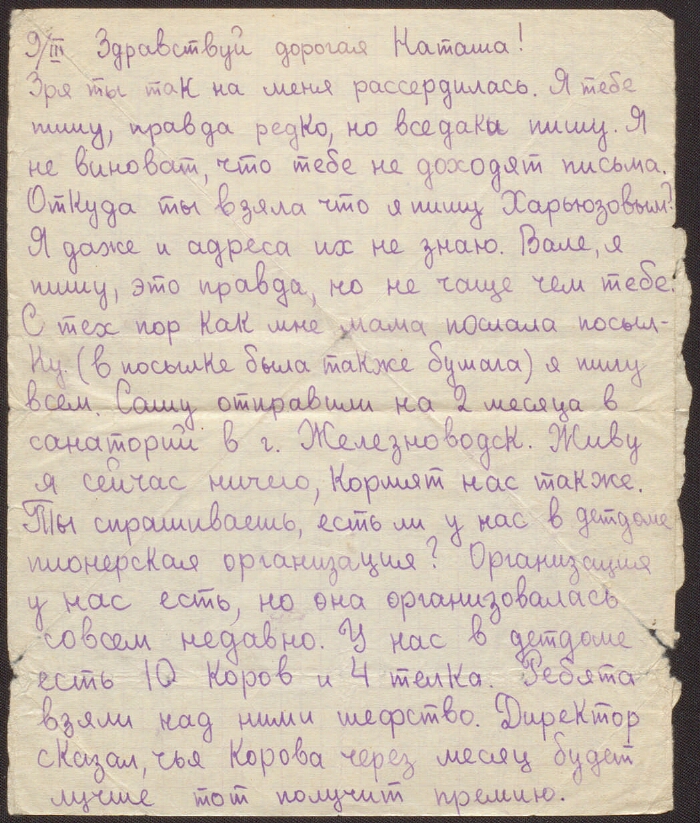 9/III Здравствуй дорогая Наташа!
Зря ты так на меня рассердилась. Я тебе
пишу, правда редко, но вседаки пишу. Я
не виноват, что тебе не доходят письма.
Откуда ты взяла что я пишу Харьюзовым?
Я даже и адреса их не знаю. Вале, я
пишу, это правда, но не чаще чем тебе.
С тех пор как мне мама послала посыл-
ку. (в посылке была также бумага) я пишу
всем. Сашу отправили на 2 месяца в
санаторий в г. Железноводск. Живу
я сейчас ничего, кормят нас также.
Ты спрашиваешь, есть ли у нас в детдоме
пионерская организация? Организация
у нас есть, но она организовалась
совсем недавно. У нас в детдоме
есть 10 коров и 4 телка. Ребята
взяли над ними шефство. Директор
сказал, чья корова через месяц будет
лучше тот получит премию.